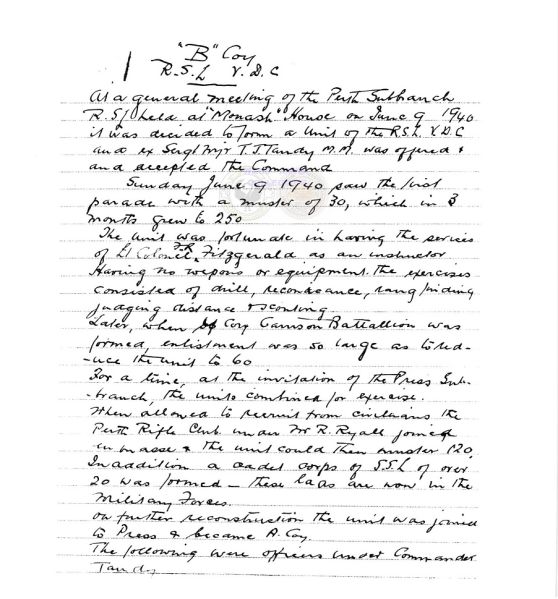 "B" Coy
R.S.L V.D.C
At a general meeting of the Perth Subbranch
R.S.L held at "Monash" House on June 9 1940
it was decided to form a unit of the R.S.L. V.D.C
and ex Sergt Mjr T.J Tandy M.M. was offered &
and accepted the Command
Sunday June 9 1940 saw the first
parade with a muster of 30, which in 3
months grew to 250
The unit was fortunate in having the services
of Lt Colonel Fitzgerald as an instructor
Having no wepons or equipment. the exercises
consisted of drill, reconisance, rang finding
judging distance & scouting.
Later, when Coy Garrison Battallion was
formed, enlistment was so large as to red-
-uce the unit to 60
For a time, at the invitation of the Press Sub-
-branch, the units combined for exercise.
When allowed to recruit from civilians the
Perth Rifle Club under Mr R. Ryall joined
en masse & the unit could then muster 120.
In addition a cadet corps of S.S.L of over
20 was formed – these lads are now in the
Military Forces.
on further reconstruction the unit was joined
to Press & became A. Coy.
The following were officers under Commander
Tandy